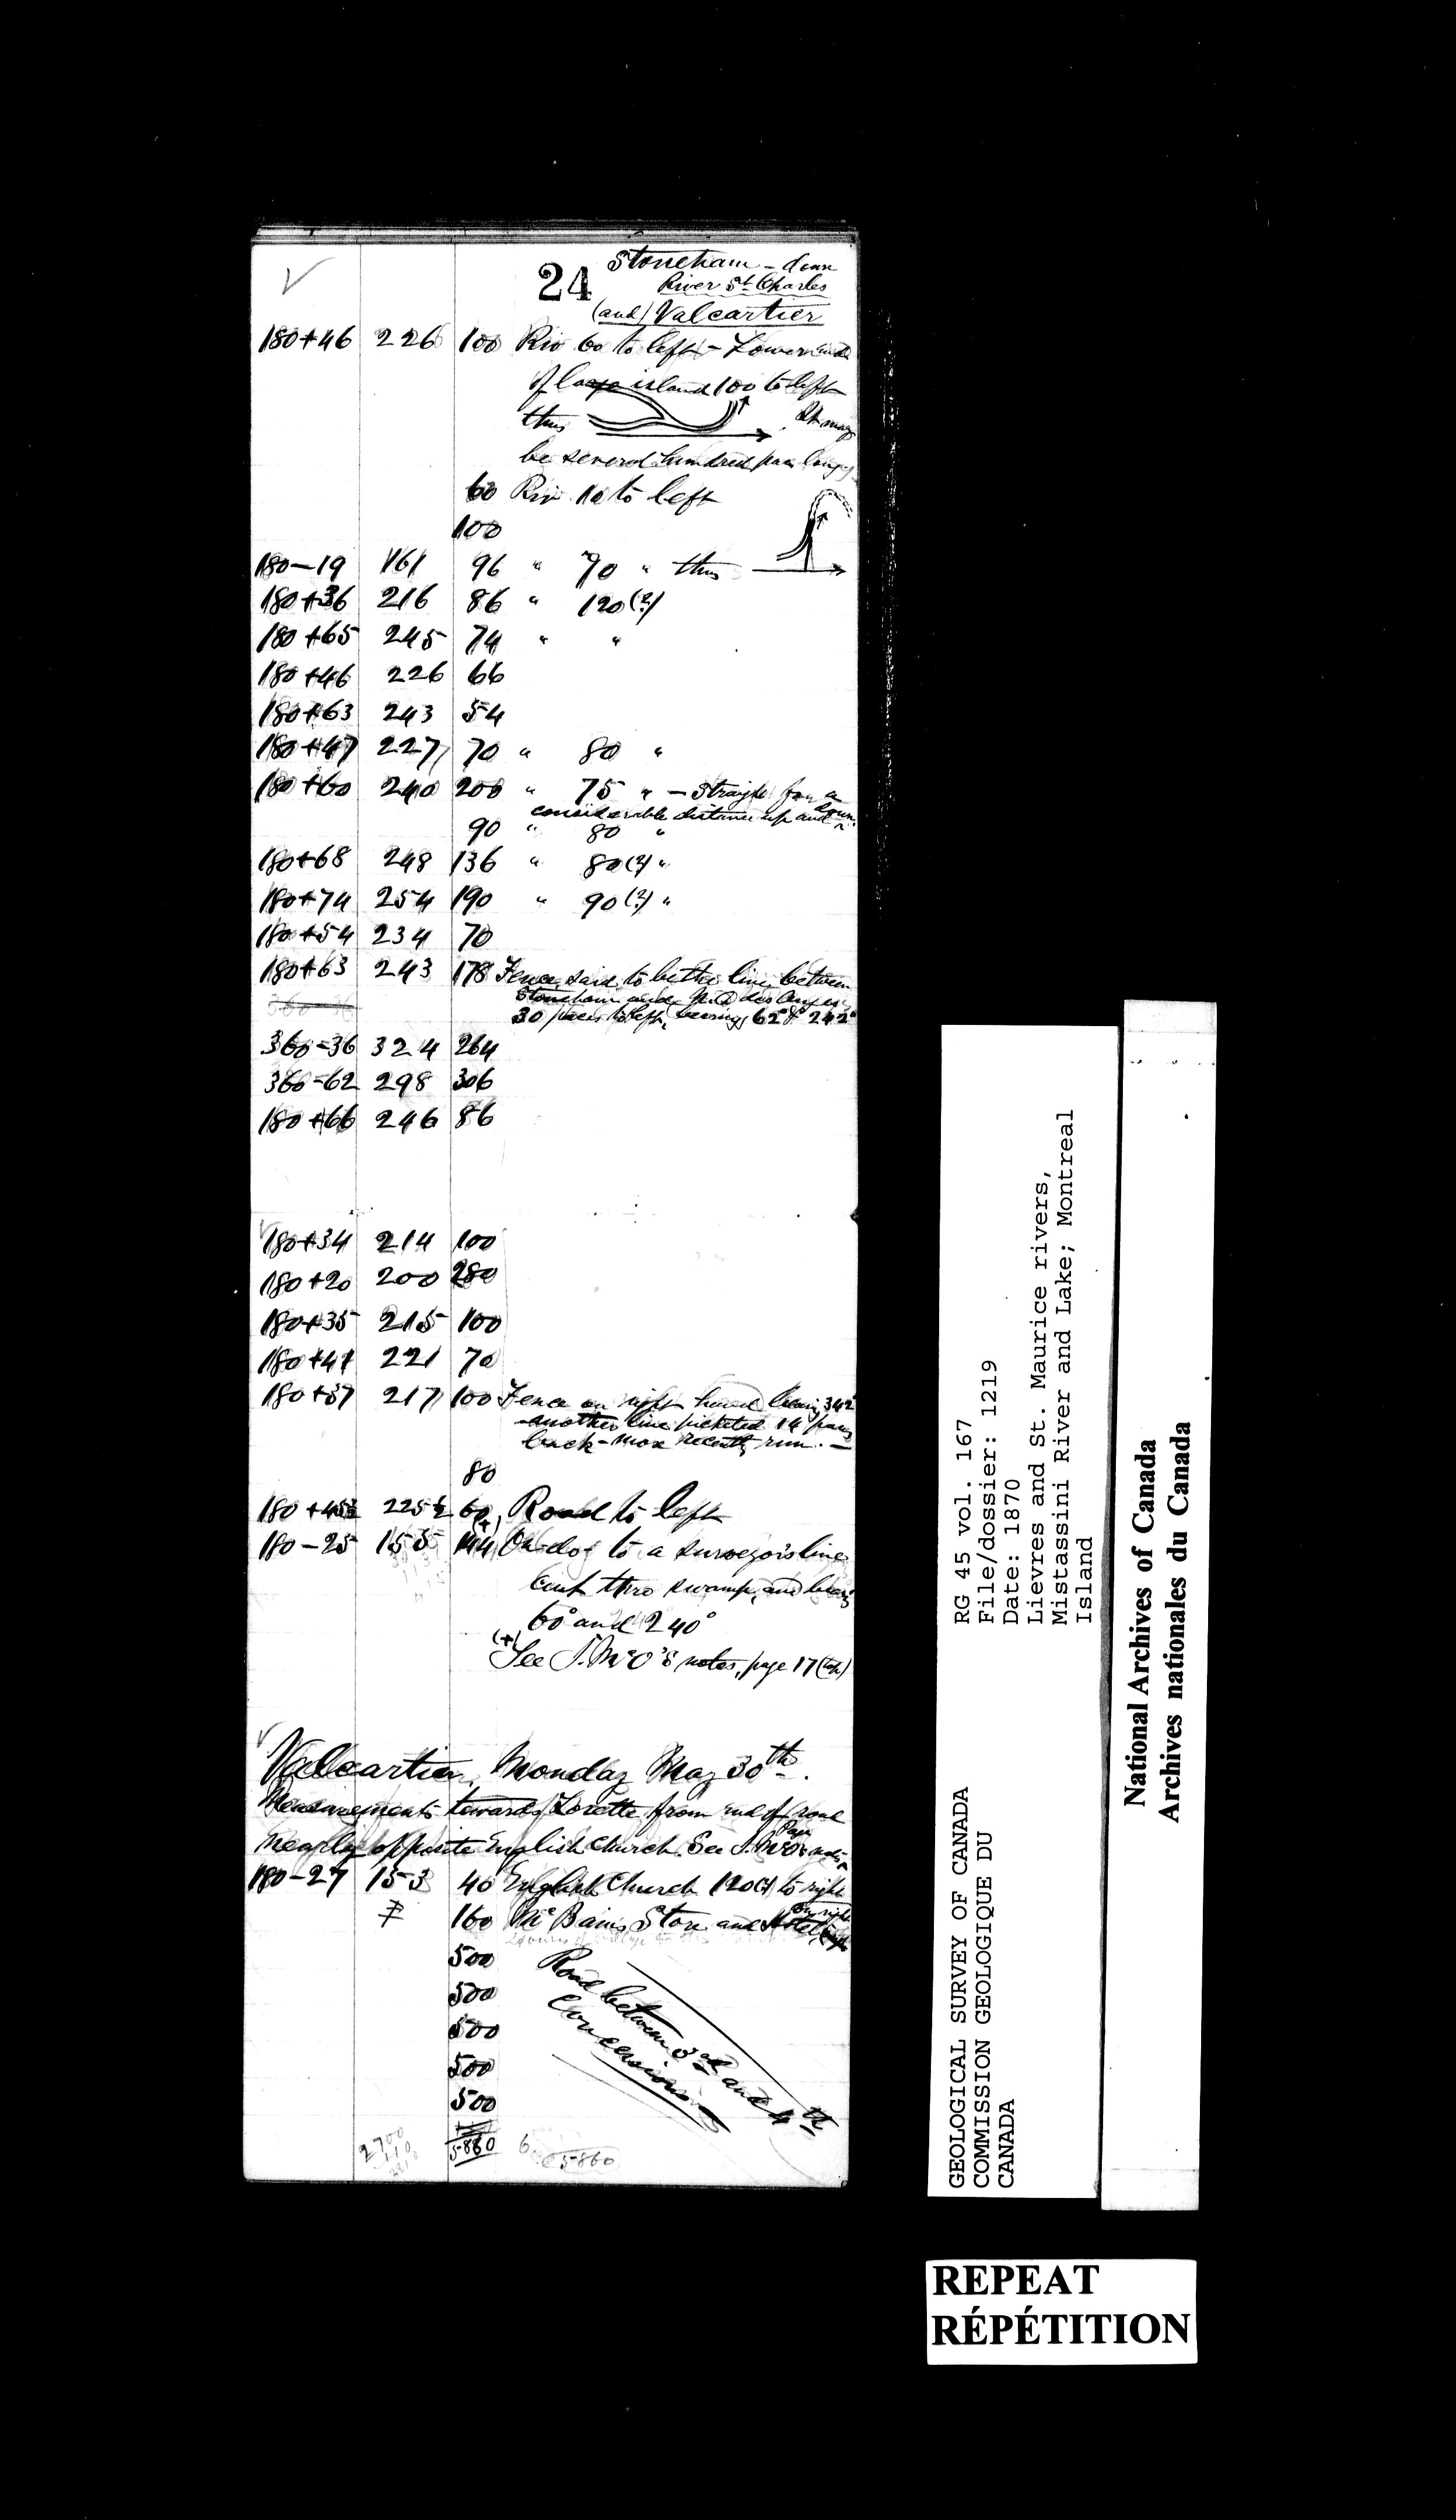 24 Stoneham - down
River St. Charles
(and) Valcartier
180+46 226 100 Riv 60 to left - Lower end
of large island 100 to left
thus It may
be several hundred paces long
60 Riv 10 to left
100
180-19 161 96 " 70 " thus
180+36 216 86 " 120(?)
180+65 245 74 " "
180+46 226 66
180+63 243 54
180+47 227 70 " 80 "
180+60 240 200 " 75 " - Straight for a
considerable distance up and down.
90 " 80 "
180+68 248 136 " 80(?) "
180+74 254 190 " 90(?) "
180+54 234 70
180+63 243 178 Fence said to be the line between
Stoneham and N.D des Anges,
30 paces to left, bearing 62° & 242°
360-36 324 264
360-62 298 306
180+66 246 86
180+34 214 100
180+20 200 280
180+35 215 100
180+41 221 70
180+37 217 100 Fence on right hand bearing 342
another line picketed 14 paces
back - more recently run. -
80
180+45½ 225½ 60 Road to left
180-25 155 144 (+) On do. to a surveyor's line
cut thro swamp, and bearing
60° and 240°
(+) See J. McO's notes, page 17 (top)
Valcartier, Monday May 30th.
Measurements towards Lorette from end of road
nearly opposite English Church. See J. McO's notes
Page
180-27 153 40 English Church 120 to right
160 McBains Store and Hotel on right
500 Road between 3rd and 4th
500 Concessions
500
500
500
5860 6 5860
2700
GEOLOGICAL SURVEY OF CANADA
COMMISSION GEOLOGIQUE DU
CANADA
RG 45 vol. 167
File/dossier: 1219
Date: 1870
Lievres and St. Maurice rivers,
Mistassini River and Lake; Montreal
Island
National Archives of Canada
Archives nationales du Canada
REPEAT
RÉPÉTITION